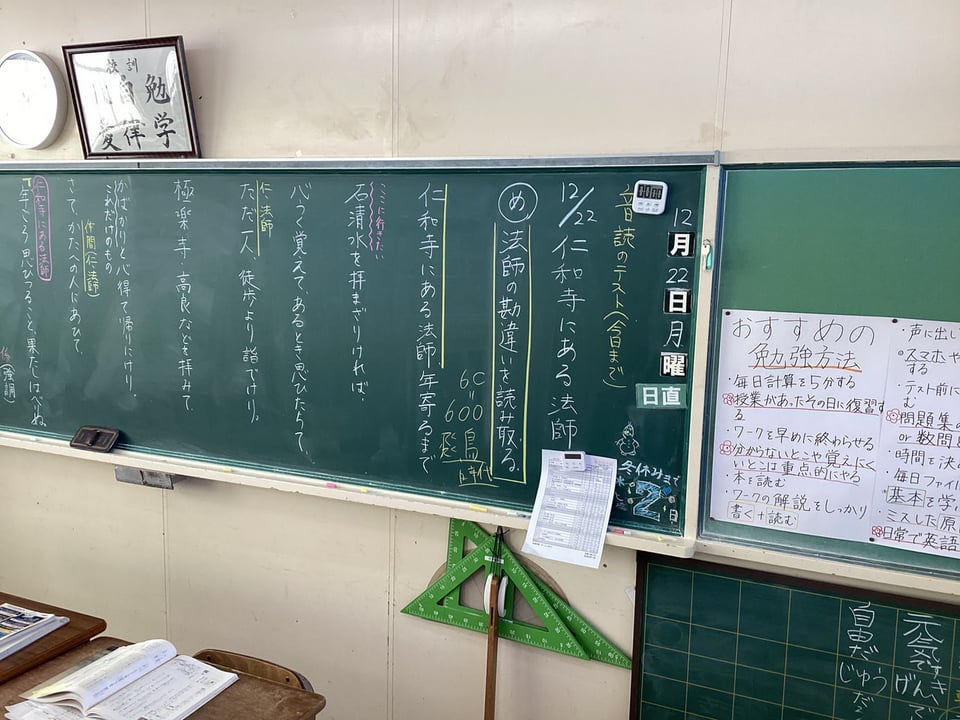 校訓
勉学
12
月
22
日
月
曜
日直
音読のテスト(今日まで)
12/22 仁和寺にある法師
め 法師の勘違いを読み取る。
6C
600
飛鳥
時代
仁和寺にある法師 年寄るまで
ここに行きたい
石清水を拝まざりければ、
心うく覚えて、あるとき思ひたちて、
仁(法師)
ただ一人、徒歩より詣でけり。
極楽寺・高良などを拝みて、
かばかりと心得て帰りにけり。
これだけのもの
仲間(仁(法師))
さて、かたへの人にあひて、
仁和寺にある法師
「年ごろ思ひつること、果たしはべりぬ
冬休みまで
2
日
おすすめの
勉強方法
・毎日計算を5分する
授業があったその日に復習する
・ワークを早めに終わらせる
分からないとこや覚えにくいとこは重点的にやる
・本を読む
・ワークの解説をしっかり
書く+読む
・声に出し
スマホや
する
・テスト前に
む
問題集の
or 数問
・時間を決
・毎日ファイ
基本を学
・ミスした原
日常で英語
元気です
げんき
自由だ
じゆうだ